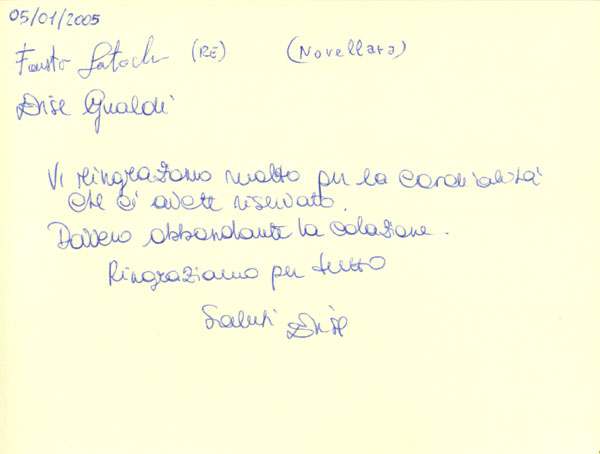 05/01/2005
Fausto (RE) (Novellara)
Gualdi
Vi ringraziamo molto per la cordialità
che ci avete riservato.
Davvero abbondante la colazione.
Ringraziamo per tutto
Saluti